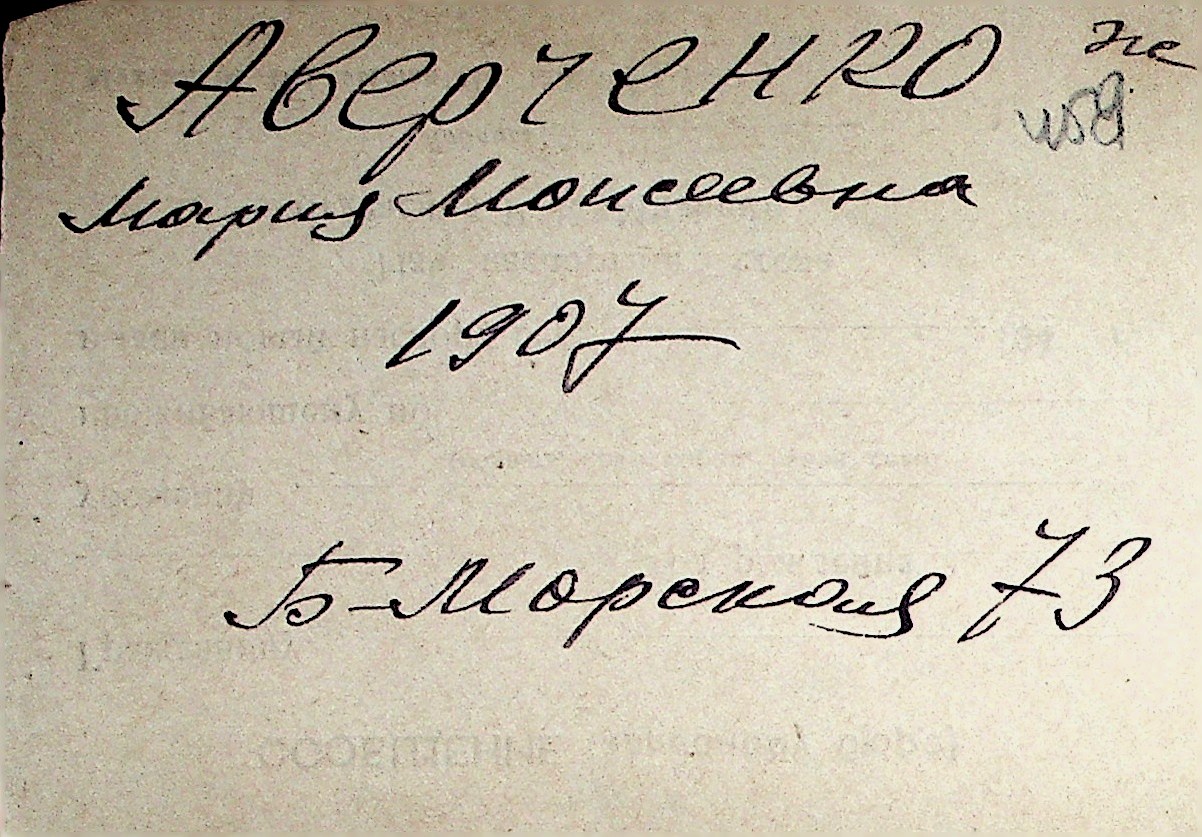 Аверченко
Мария Моисеевна
1907
Б-Морская 73